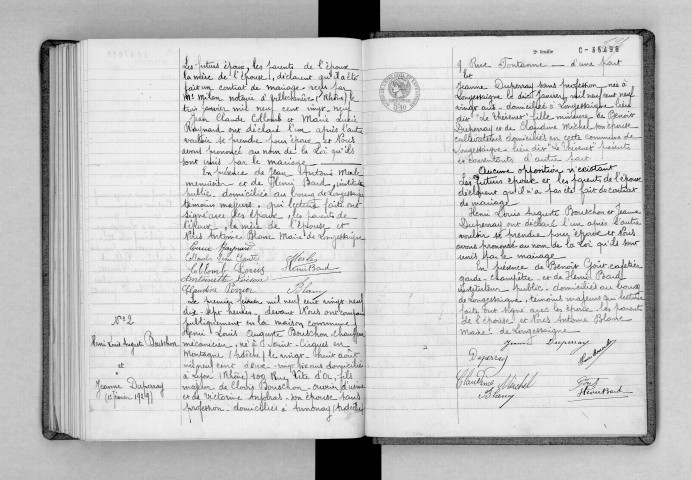 Les futurs époux, les parents de l'époux
la mère de l'épouse, déclarent qu'il a été
fait un contrat de mariage reçu par
Me Milon notaire à Villefranche (Rhône) le
trois janvier mil neuf cent vingt neuf
Jean Claude Collomb et Marie Lucie
Raynard ont déclaré l'un après l'autre
vouloir se prendre pour époux et Nous
avons prononcé au nom de la Loi qu'ils
sont unis par le mariage
En présence de Jean Antoine
menuisier et de Henri Bard, instituteur
public, domiciliés au bourg de Longessaigne
témoins majeurs, qui lecture faite ont
signé avec les époux, les parents de
l'époux, la mère de l'épouse et
Nous Antoine Blanc Maire de Longessaigne
Lucie Raynard
Collomb Jean Claude
Collomb
Henri Bard
Claudine
Blanc
N° 2
Henri Louis Auguste Bouschon
et
Jeanne Duperray
(1er février 1929)
Le premier février mil neuf cent vingt neuf
dix sept heures, devant Nous ont comparu
publiquement en la maison commune
Henri Louis Auguste Bouschon chauffeur
mécanicien, né à Saint-Cirgues en
Montagne (Ardèche) le vingt huit août
mil neuf cent deux vingt six ans domicilié
à Lyon (Rhône) 100 Rue Tête d'Or, fils
majeur de Clovis Bouschon ouvrier d'usine
et de Victorine son épouse sans
profession domiciliés à Annonay (Ardèche)
2e feuille
C-35498
9 Rue Fontanne — d'une part
Et
Jeanne Duperray sans profession née à
Longessaigne le dix janvier mil neuf cent neuf
vingt ans domiciliée à Longessaigne lieu
dit "Le Thésinet" fille mineure de Benoît
Duperray et de Claudine Michel son épouse
cultivateurs domiciliés en cette commune de
Longessaigne lieu dit Le Thésinet présents
et consentants d'autre part
Aucune opposition n'existant
Les futurs époux et les parents de l'épouse
déclarent qu'il n'a pas été fait de contrat
de mariage
Henri Louis Auguste Bouschon et Jeanne
Duperray ont déclaré l'un après l'autre
vouloir se prendre pour époux et Nous
avons prononcé au nom de la Loi qu'ils sont
unis par le mariage
En présence de Benoît cafetier
garde-champêtre et de Henri Bard
instituteur public domiciliés au bourg
de Longessaigne, témoins majeurs qui lecture
faite ont signé avec les époux les parents
de l'épouse et Nous Antoine Blanc
Maire de Longessaigne
Jeanne Duperray
Duperray
Bouschon
Claudine Michel
Blanc
Henri Bard